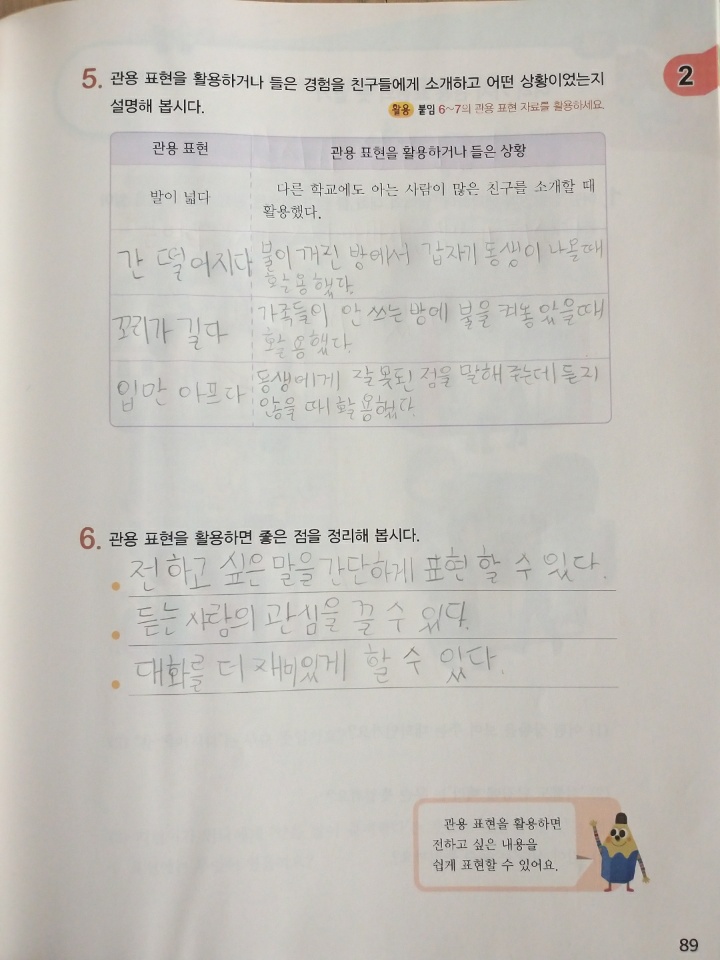 5. 관용 표현을 활용하거나 들은 경험을 친구들에게 소개하고 어떤 상황이었는지
설명해 봅시다.
활용 붙임 6~7의 관용 표현 자료를 활용하세요.
2
관용 표현
관용 표현을 활용하거나 들은 상황
발이 넓다
다른 학교에도 아는 사람이 많은 친구를 소개할 때
활용했다.
간 떨어지다
불이 꺼진 방에서 갑자기 동생이 나올때
활용했다.
꼬리가 길다
가족들이 안 쓰는 방에 불을 켜놓았을때
활용했다.
입만 아프다
동생에게 잘못된 점을 말해 주는데 듣지
않을 때 활용했다.
6. 관용 표현을 활용하면 좋은 점을 정리해 봅시다.
전하고 싶은 말을 간단하게 표현 할 수 있다.
듣는 사람의 관심을 끌 수 있다.
대화를 더 재미있게 할 수 있다.
관용 표현을 활용하면
전하고 싶은 내용을
쉽게 표현할 수 있어요.
89